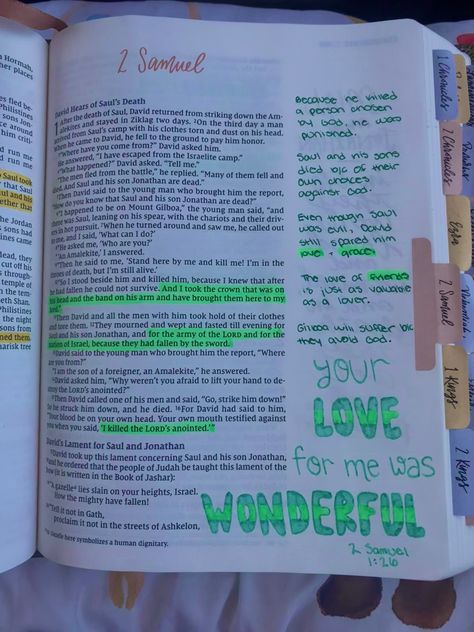 2 Samuel
David Hears of Saul's Death
After the death of Saul, David returned from striking down the Am-
alekites and stayed in Ziklag two days. ²On the third day a man
arrived from Saul's camp with his clothes torn and dust on his head.
When he came to David, he fell to the ground to pay him honor.
"Where have you come from?" David asked him.
He answered, "I have escaped from the Israelite camp."
"What happened?" David asked. "Tell me."
"The men fled from the battle," he replied. "Many of them fell and
died. And Saul and his son Jonathan are dead."
Then David said to the young man who brought him the report,
"How do you know that Saul and his son Jonathan are dead?"
"I happened to be on Mount Gilboa," the young man said, "and
there was Saul, leaning on his spear, with the chariots and their driv-
ers in hot pursuit. ⁷When he turned around and saw me, he called out
to me, and I said, 'What can I do?'
"He asked me, 'Who are you?'
"'An Amalekite,' I answered.
"Then he said to me, 'Stand here by me and kill me! I'm in the
throes of death, but I'm still alive.'
"So I stood beside him and killed him, because I knew that after
he had fallen he could not survive. And I took the crown that was on
his head and the band on his arm and have brought them here to my
lord."
Then David and all the men with him took hold of their clothes
and tore them. ¹²They mourned and wept and fasted till evening for
Saul and his son Jonathan, and for the army of the LORD and for the
nation of Israel, because they had fallen by the sword.
David said to the young man who brought him the report, "Where
are you from?"
"I am the son of a foreigner, an Amalekite," he answered.
David asked him, "Why weren't you afraid to lift your hand to de-
stroy the LORD's anointed?"
Then David called one of his men and said, "Go, strike him down!"
So he struck him down, and he died. ¹⁶For David had said to him,
"Your blood be on your own head. Your own mouth testified against
you when you said, 'I killed the LORD's anointed.'"
David's Lament for Saul and Jonathan
David took up this lament concerning Saul and his son Jonathan,
and he ordered that the people of Judah be taught this lament of the
bow (it is written in the Book of Jashar):
"A gazelle lies slain on your heights, Israel.
How the mighty have fallen!
"Tell it not in Gath,
proclaim it not in the streets of Ashkelon,
Gazelle here symbolizes a human dignitary.
Because he killed
a person chosen
by God, he was
punished.
Saul and his sons
died b/c of their
own choices
against God.
Even though Saul
was evil, David
still spared him
love + grace.
The love of friends
is just as valuable
as a lover.
Gilboa will suffer b/c
they avoid God.
your
LOVE
for me was
WONDERFUL
2 Samuel
1:26
1 Chronicles
2 Chronicles
Ezra
2 Samuel
1 Kings
2 Kings